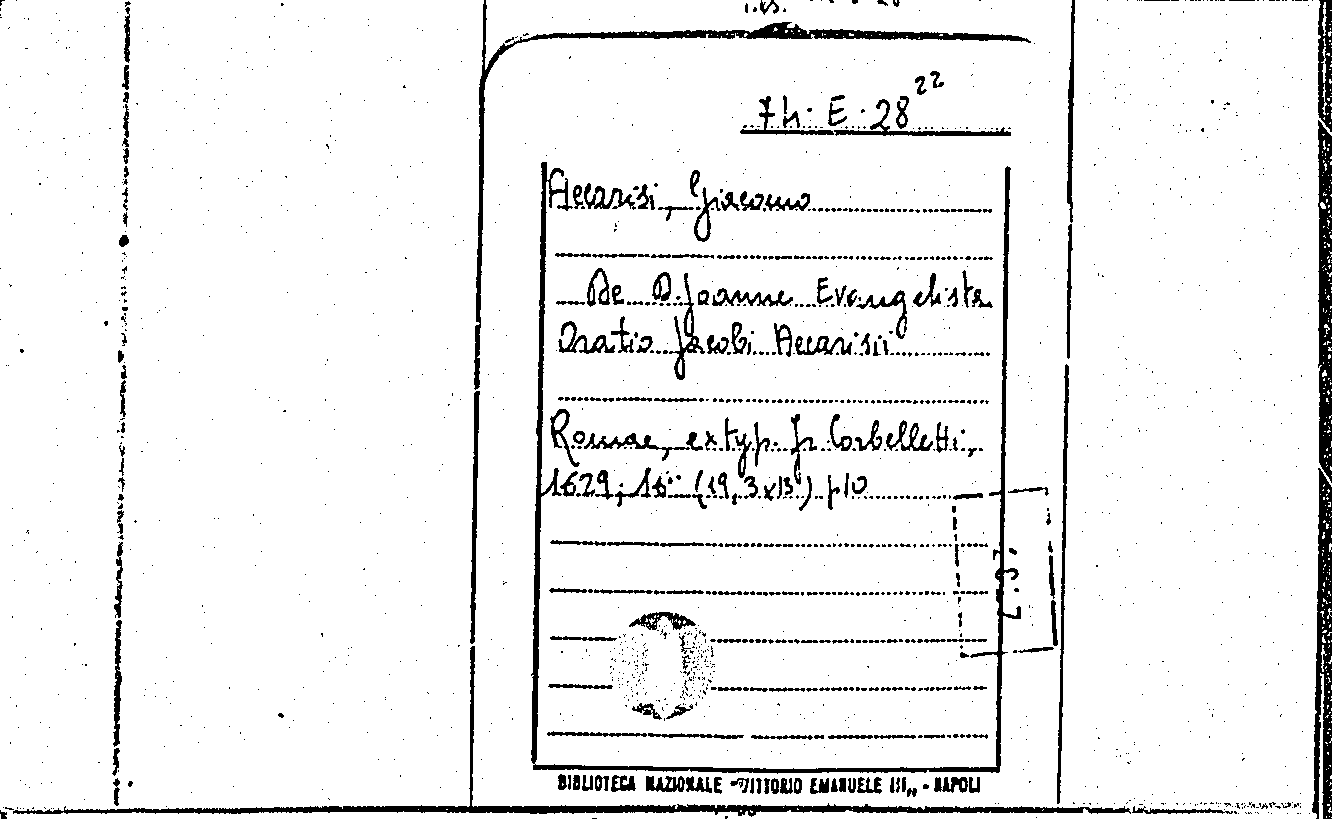 7h. E. 28 22
Accarisi, Giacomo
De D. Joanne Evangelista
Oratio Jacobi Accarisii
Romae, ex typ. Fr. Corbelletti,
1629; 16° (19,3x13) p. 10
BIBLIOTECA NAZIONALE "VITTORIO EMANUELE III„ - NAPOLI